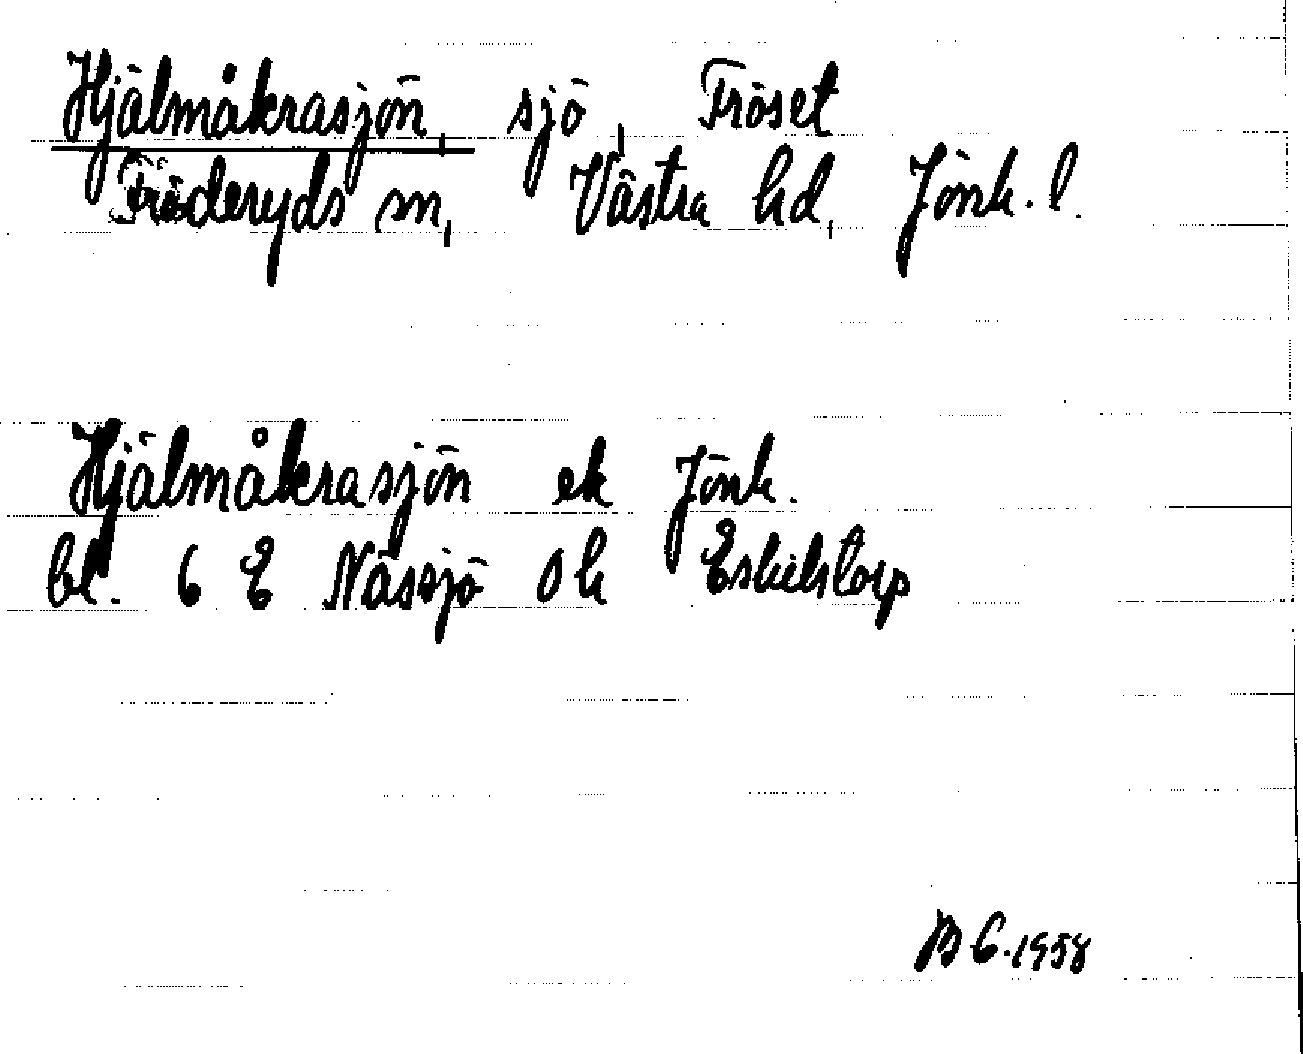 Hjälmåkrasjön, sjö, Fröset
Fröderyds sn, Västra hd, Jönk. l.
Hjälmåkrasjön ek Jönk.
bl. 6 E Nässjö 0 h Eskilstorp
B G. 1958